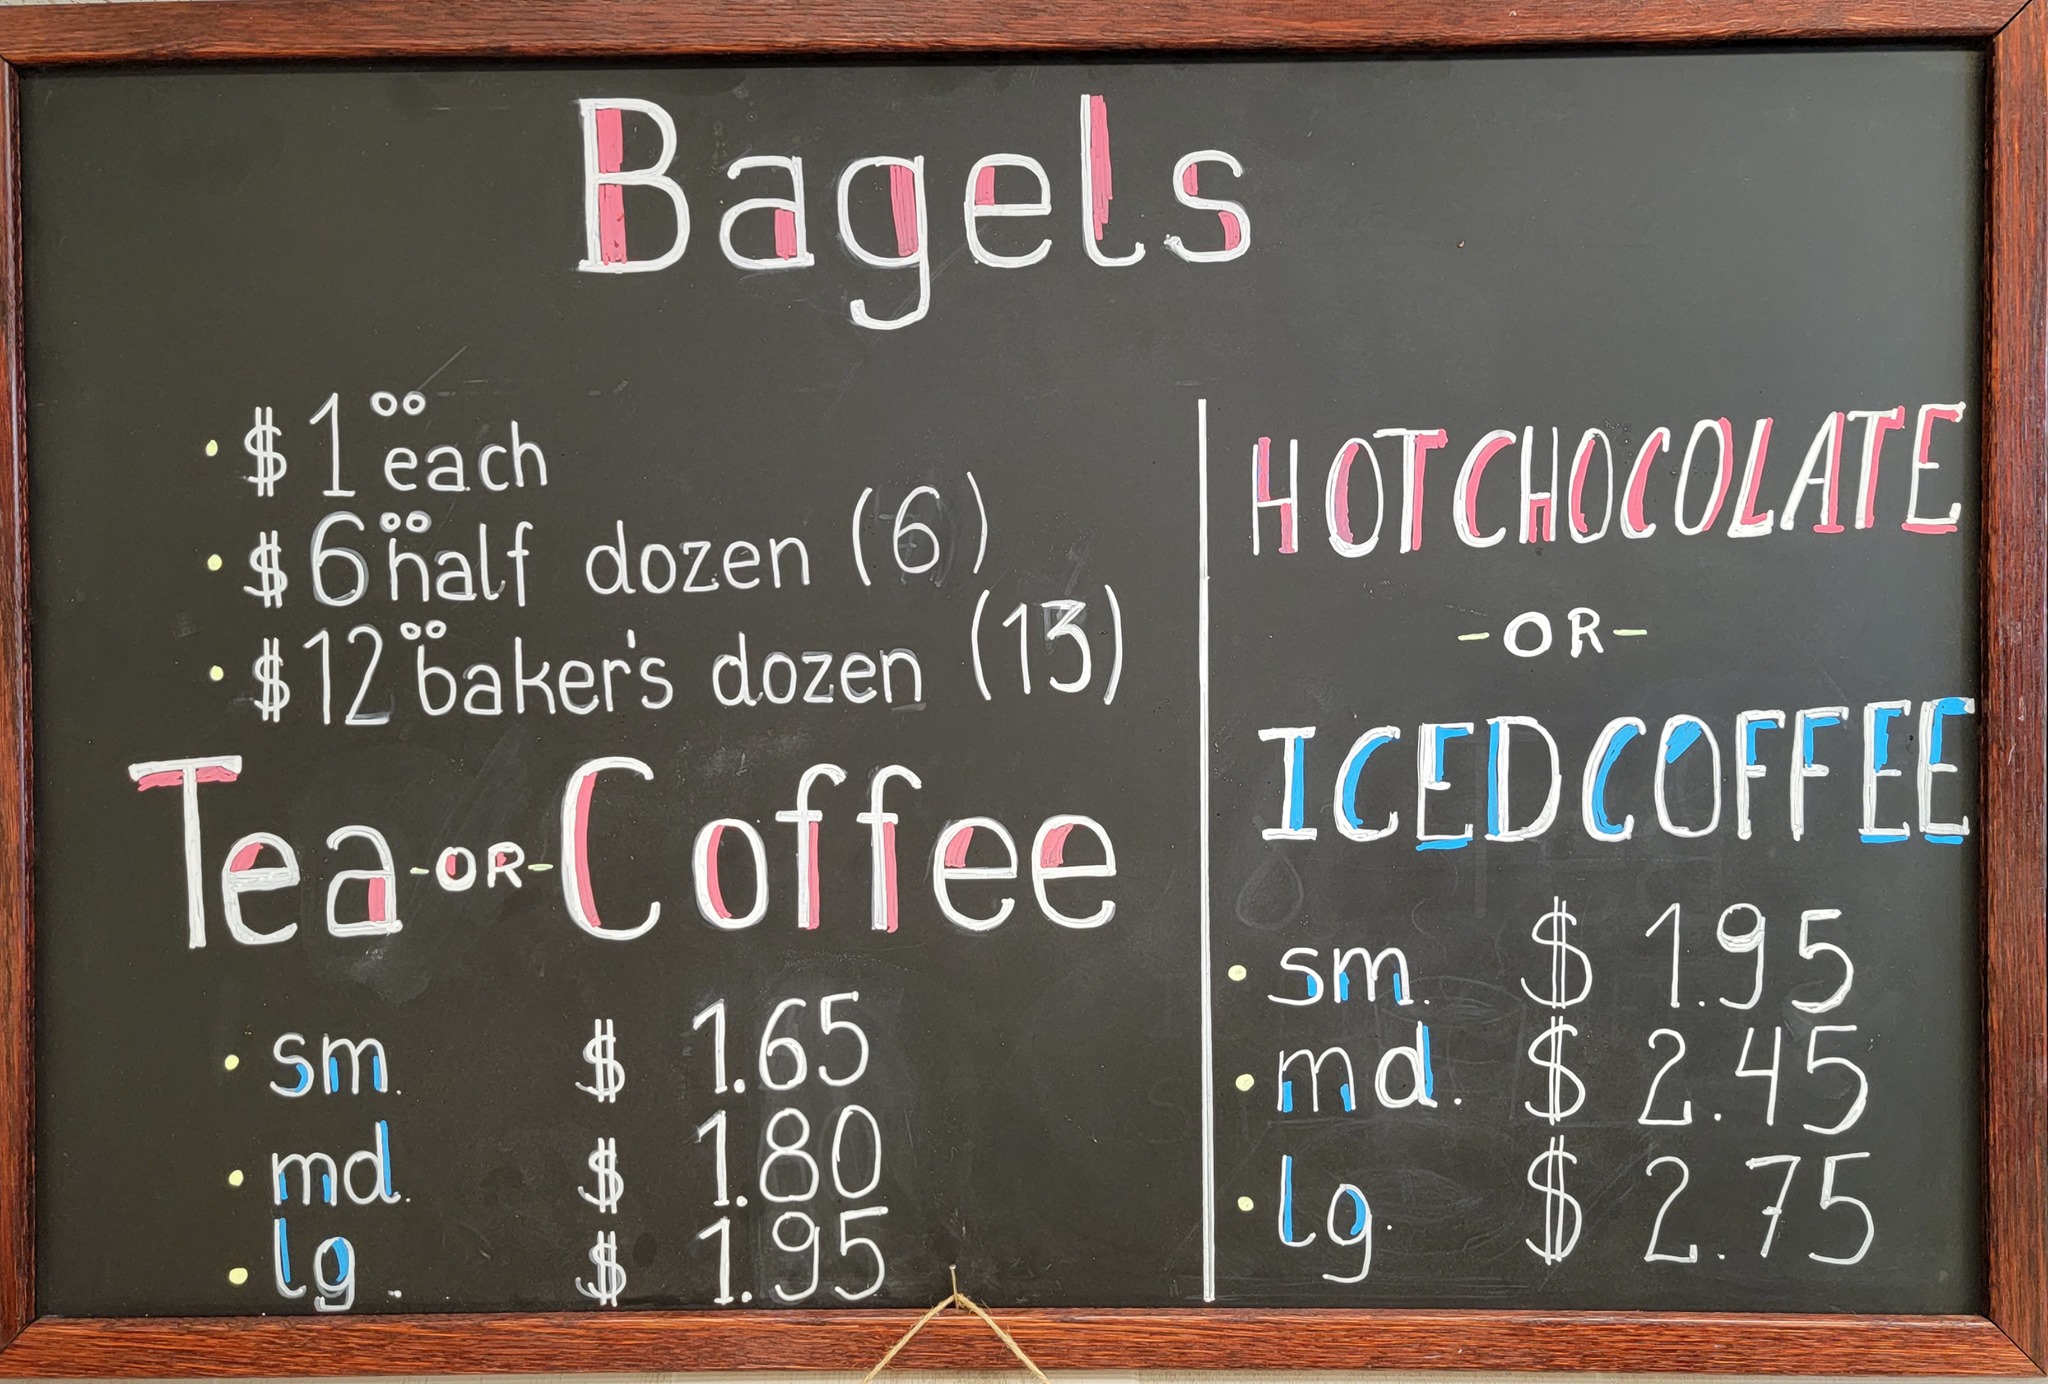 Bagels
• $1⁰⁰ each
• $6⁰⁰ half dozen (6)
• $12⁰⁰ baker's dozen (13)
Tea -OR- Coffee
• sm. $ 1.65
• md. $ 1.80
• lg. $ 1.95
HOT CHOCOLATE
-OR-
ICED COFFEE
• sm. $ 1.95
• md. $ 2.45
• lg. $ 2.75